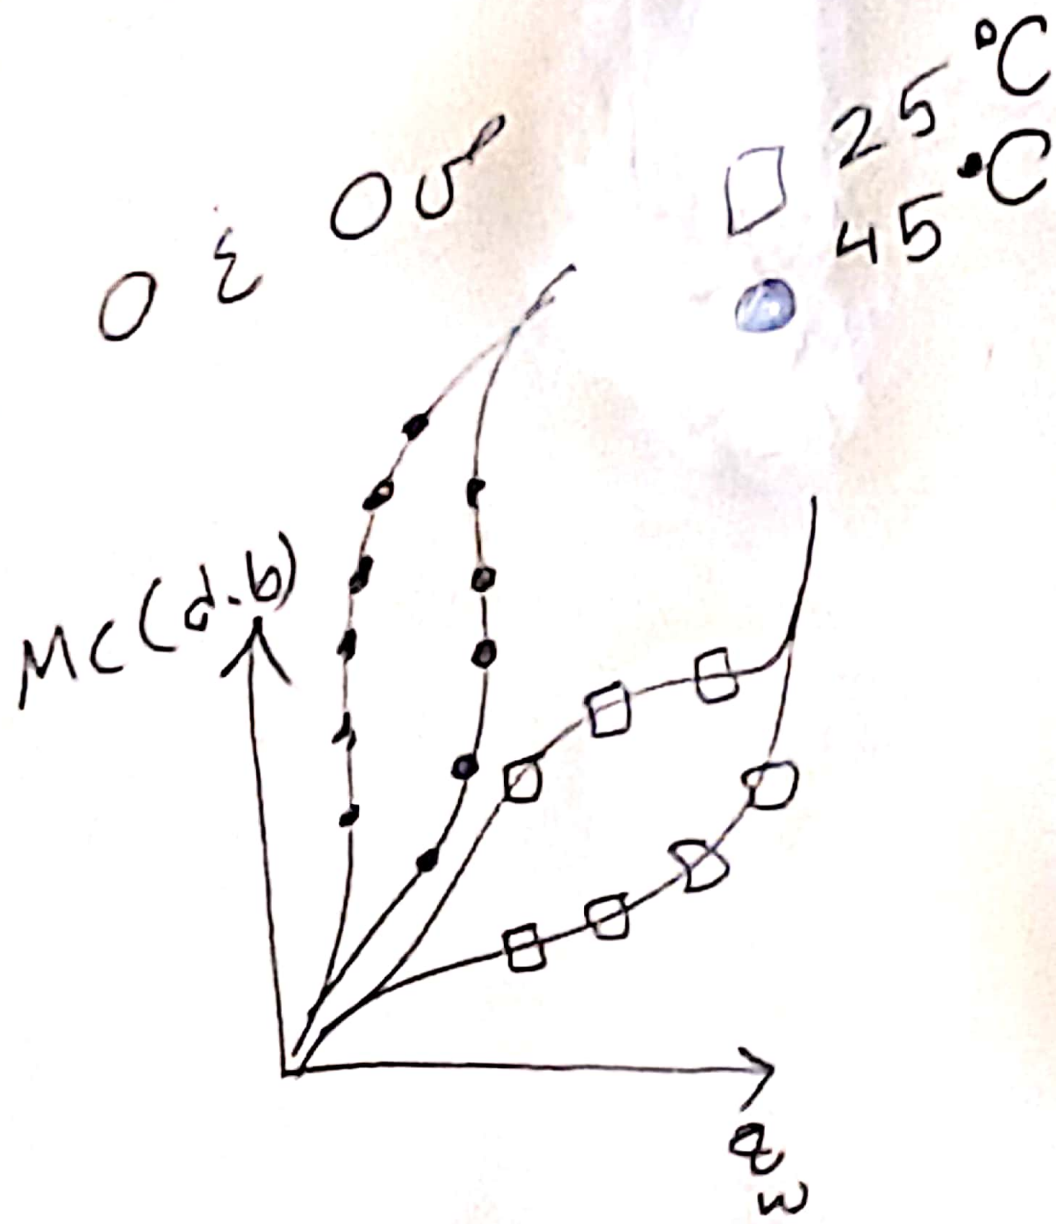 25 °C
45 °C
MC(d.b)
a
w